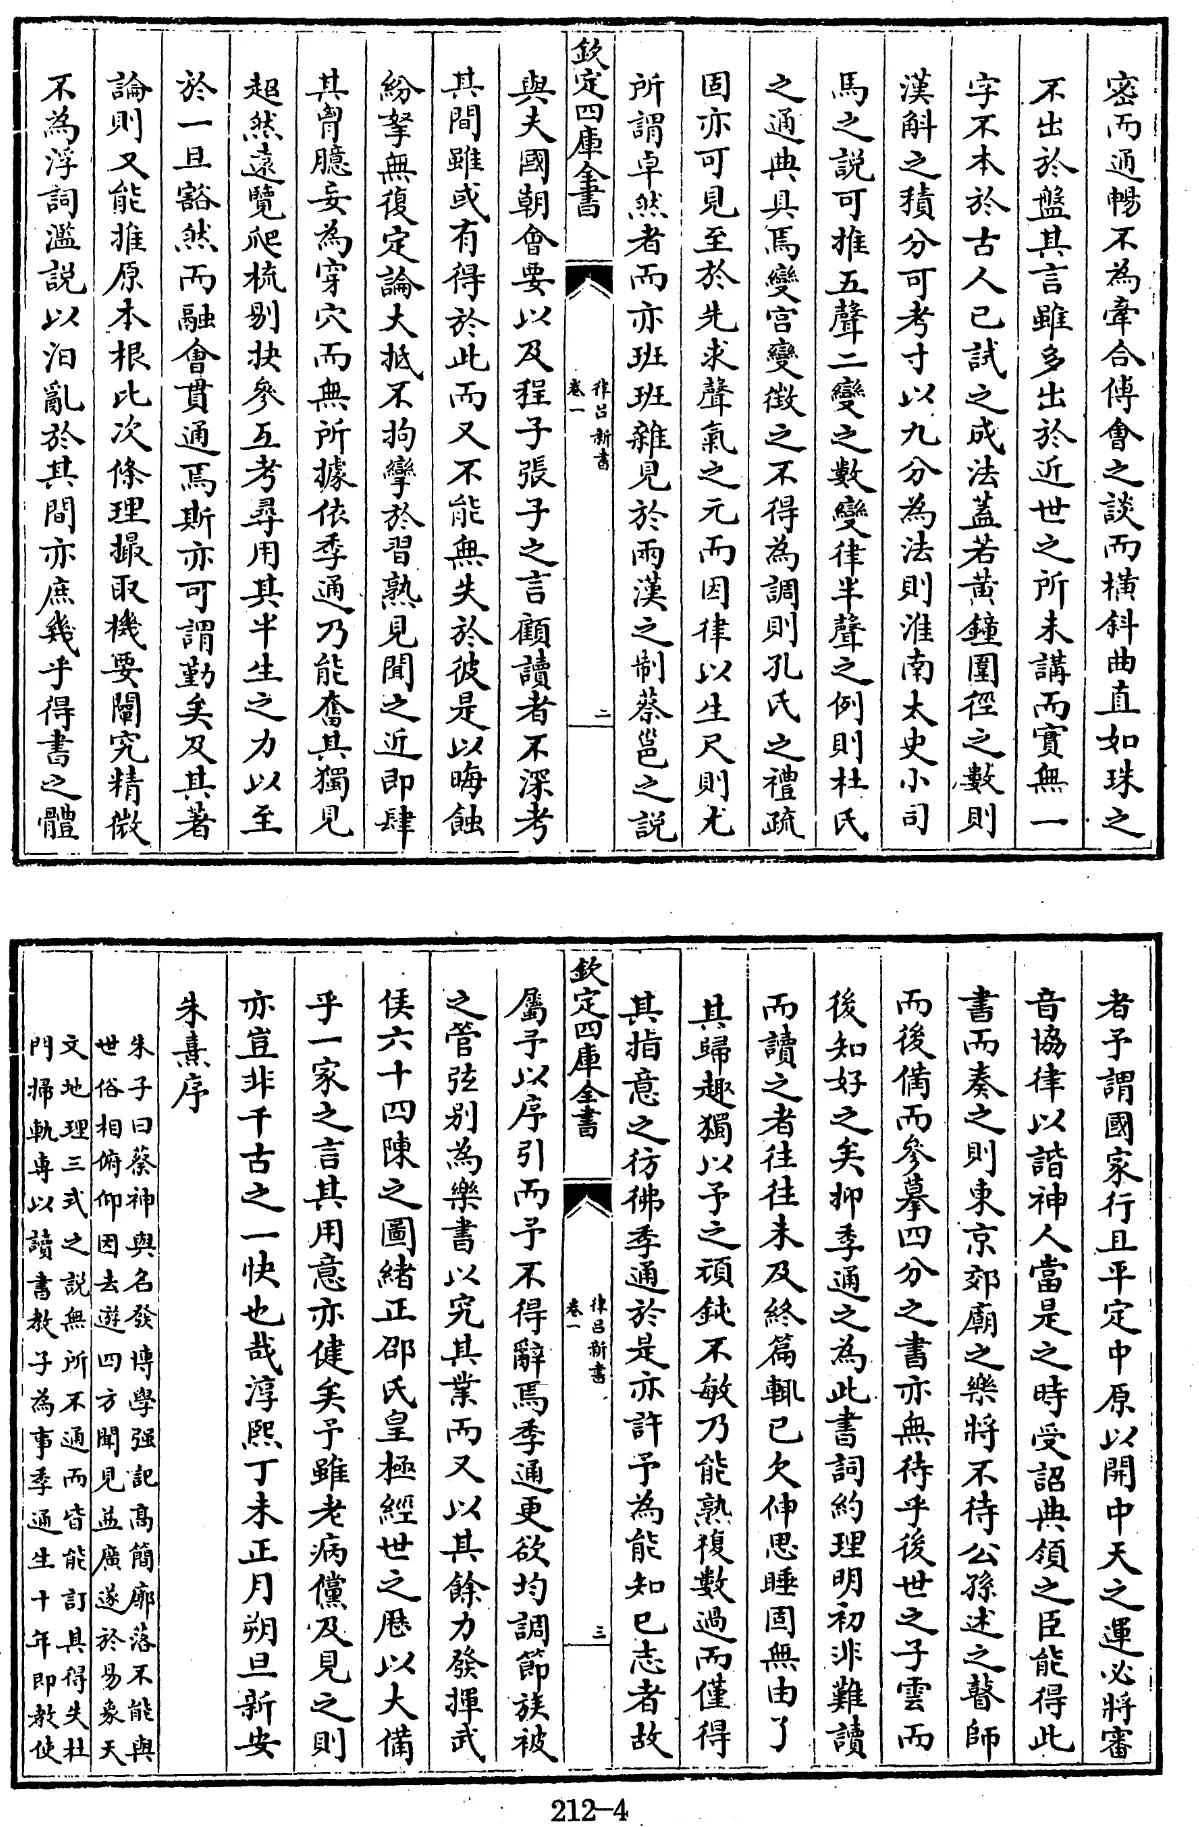 密而通暢不為牽合傅會之談而横斜曲直如珠之
不出於盤其言雖多出於近世之所未講而實無一
字不本於古人已試之成法蓋若黄鐘圍徑之數則
漢斛之積分可考寸以九分為法則淮南太史小司
馬之説可推五聲二變之數變律半聲之例則杜氏
之通典具焉變宫變徴之不得為調則孔氏之禮疏
固亦可見至於先求聲氣之元而因律以生尺則尤
所謂卓然者而亦班班雜見於兩漢之制蔡邕之説
欽定四庫全書
律吕新書
卷一
二
與夫國朝會要以及程子張子之言顧讀者不深考
其間雖或有得於此而又不能無失於彼是以晦蝕
紛拏無復定論大抵不拘攣於習熟見聞之近即肆
其胷臆妄為穿穴而無所據依季通乃能奮其獨見
超然遠覽爬梳剔抉參互考尋用其半生之力以至
於一旦豁然而融會貫通焉斯亦可謂勤矣及其著
論則又能推原本根比次條理撮取機要闡究精微
不為浮詞濫説以汩亂於其間亦庶幾乎得書之體
者予謂國家行且平定中原以開中天之運必將審
音協律以諧神人當是之時受詔典領之臣能得此
書而奏之則東京郊廟之樂將不待公孫述之瞽師
而後備而參摹四分之書亦無待乎後世之子雲而
後知好之矣抑季通之為此書詞約理明初非難讀
而讀之者往往未及終篇輒已欠伸思睡固無由了
其歸趣獨以予之頑鈍不敏乃能熟復數過而僅得
其指意之彷彿季通於是亦許予為能知已志者故
欽定四庫全書
律吕新書
卷一
三
屬予以序引而予不得辭焉季通更欲均調節族被
之管弦别為樂書以究其業而又以其餘力發揮武
侯六十四陳之圖緒正邵氏皇極經世之厯以大備
乎一家之言其用意亦健矣予雖老病儻及見之則
亦豈非千古之一快也哉淳熙丁未正月朔旦新安
朱熹序
朱子曰蔡神與名發博學强記髙簡廓落不能與
世俗相俯仰因去遊四方聞見益廣遂於易象天
文地理三式之説無所不通而皆能訂其得失杜
門掃軌専以讀書教子為事季通生十年即教使
212-4